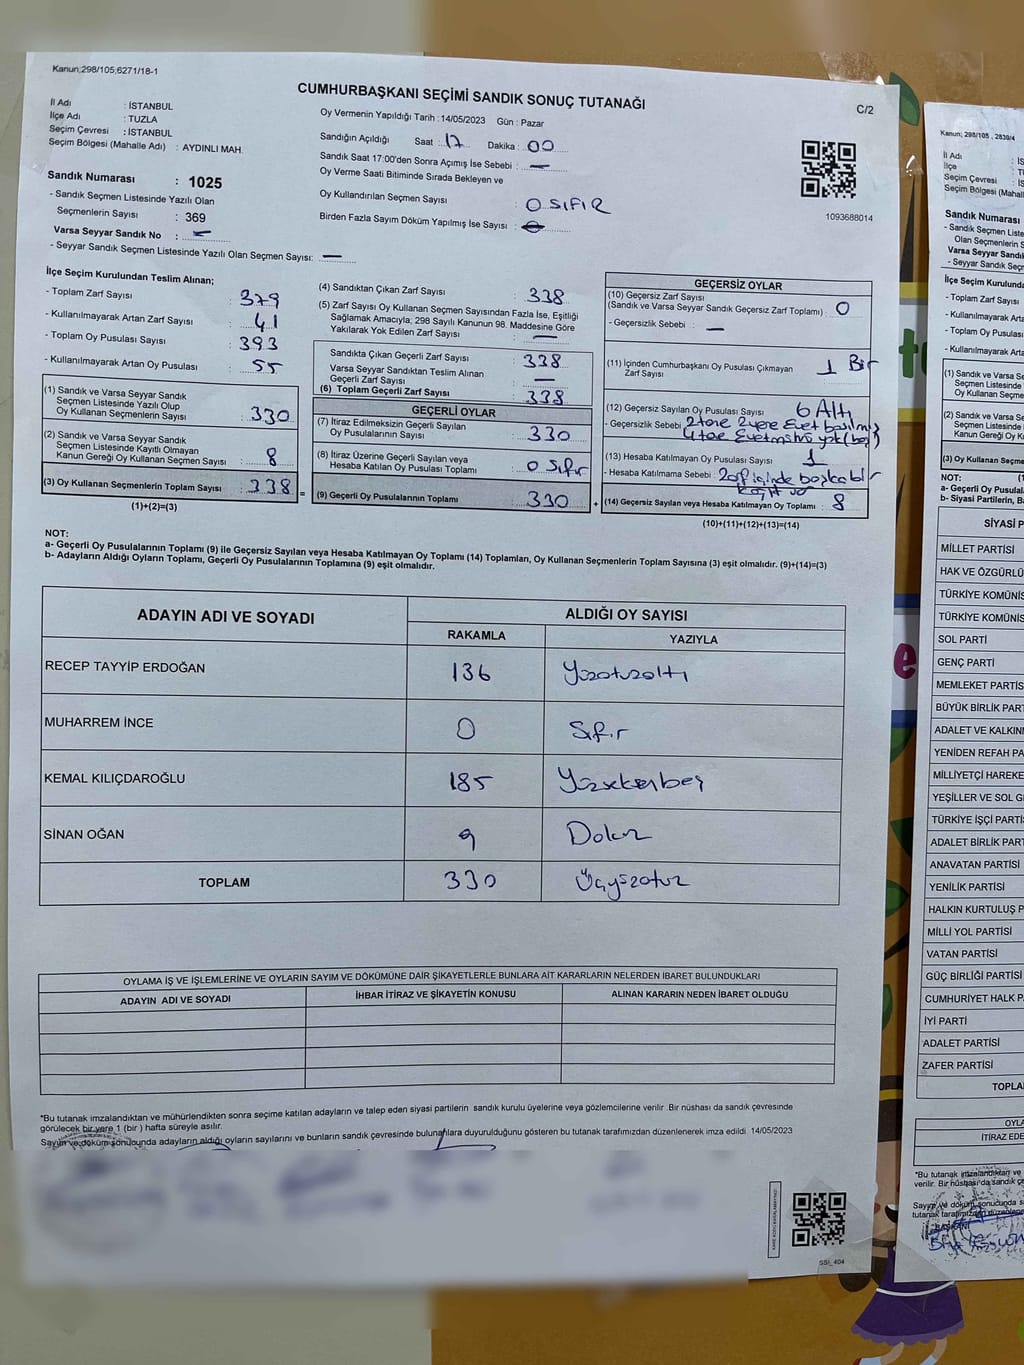 Kanun;298/105;6271/18-1
CUMHURBAŞKANI SEÇİMİ SANDIK SONUÇ TUTANAĞI
C/2
İl Adı : İSTANBUL
İlçe Adı : TUZLA
Seçim Çevresi : İSTANBUL
Seçim Bölgesi (Mahalle Adı) : AYDINLI MAH.
Sandık Numarası : 1025
- Sandık Seçmen Listesinde Yazılı Olan
Seçmenlerin Sayısı : 369
Varsa Seyyar Sandık No : —
- Seyyar Sandık Seçmen Listesinde Yazılı Olan Seçmen Sayısı: —
Oy Vermenin Yapıldığı Tarih :14/05/2023 Gün : Pazar
Sandığın Açıldığı Saat : 17 Dakika : 00
Sandık Saat 17:00'den Sonra Açımış İse Sebebi : —
Oy Verme Saati Bitiminde Sırada Bekleyen ve
Oy Kullandırılan Seçmen Sayısı : 0 SIFIR
Birden Fazla Sayım Döküm Yapılmış İse Sayısı :
1093688014
İlçe Seçim Kurulundan Teslim Alınan;
- Toplam Zarf Sayısı : 379
- Kullanılmayarak Artan Zarf Sayısı : 41
- Toplam Oy Pusulası Sayısı : 393
- Kullanılmayarak Artan Oy Pusulası : 55
(1) Sandık ve Varsa Seyyar Sandık
Seçmen Listesinde Yazılı Olup
Oy Kullanan Seçmenlerin Sayısı : 330
(2) Sandık ve Varsa Seyyar Sandık
Seçmen Listesinde Kayıtlı Olmayan
Kanun Gereği Oy Kullanan Seçmen Sayısı : 8
(3) Oy Kullanan Seçmenlerin Toplam Sayısı : 338
(1)+(2)=(3)
(4) Sandıktan Çıkan Zarf Sayısı : 338
(5) Zarf Sayısı Oy Kullanan Seçmen Sayısından Fazla İse, Eşitliği
Sağlamak Amacıyla; 298 Sayılı Kanunun 98. Maddesine Göre
Yakılarak Yok Edilen Zarf Sayısı : —
Sandıkta Çıkan Geçerli Zarf Sayısı : 338
Varsa Seyyar Sandıktan Teslim Alınan
Geçerli Zarf Sayısı : —
(6) Toplam Geçerli Zarf Sayısı : 338
GEÇERLİ OYLAR
(7) İtiraz Edilmeksizin Geçerli Sayılan
Oy Pusulalarının Sayısı : 330
(8) İtiraz Üzerine Geçerli Sayılan veya
Hesaba Katılan Oy Pusulası Toplamı : 0 Sıfır
=
(9) Geçerli Oy Pusulalarının Toplamı : 330
+
GEÇERSİZ OYLAR
(10) Geçersiz Zarf Sayısı
(Sandık ve Varsa Seyyar Sandık Geçersiz Zarf Toplamı) : 0
- Geçersizlik Sebebi : —
(11) İçinden Cumhurbaşkanı Oy Pusulası Çıkmayan
Zarf Sayısı : 1 Bir
(12) Geçersiz Sayılan Oy Pusulası Sayısı : 6 Altı
- Geçersizlik Sebebi : 2 tane 2 yere Evet basılmış
4 tane Evet mührü yok (boş)
(13) Hesaba Katılmayan Oy Pusulası Sayısı : 1
- Hesaba Katılmama Sebebi : Zarf içinde başka bir
kağıt var
(14) Geçersiz Sayılan veya Hesaba Katılmayan Oy Toplamı : 8
(10)+(11)+(12)+(13)=(14)
NOT:
a- Geçerli Oy Pusulalarının Toplamı (9) ile Geçersiz Sayılan veya Hesaba Katılmayan Oy Toplamı (14) Toplamları, Oy Kullanan Seçmenlerin Toplam Sayısına (3) eşit olmalıdır. (9)+(14)=(3)
b- Adayların Aldığı Oyların Toplamı, Geçerli Oy Pusulalarının Toplamına (9) eşit olmalıdır.
ADAYIN ADI VE SOYADI ALDIĞI OY SAYISI
RAKAMLA YAZIYLA
RECEP TAYYİP ERDOĞAN 136 Yüzotuzaltı
MUHARREM İNCE 0 Sıfır
KEMAL KILIÇDAROĞLU 185 Yüzseksenbeş
SİNAN OĞAN 9 Dokuz
TOPLAM 330 Üçyüzotuz
OYLAMA İŞ VE İŞLEMLERİNE VE OYLARIN SAYIM VE DÖKÜMÜNE DAİR ŞİKAYETLERLE BUNLARA AİT KARARLARIN NELERDEN İBARET BULUNDUKLARI
ADAYIN ADI VE SOYADI İHBAR İTİRAZ VE ŞİKAYETİN KONUSU ALINAN KARARIN NEDEN İBARET OLDUĞU
*Bu tutanak imzalandıktan ve mühürlendikten sonra seçime katılan adayların ve talep eden siyasi partilerin sandık kurulu üyelerine veya gözlemcilerine verilir .Bir nüshası da sandık çevresinde
görülecek bir yere 1 (bir ) hafta süreyle asılır.
Sayım ve döküm sonucunda adayların aldığı oyların sayılarını ve bunların sandık çevresinde bulunanlara duyurulduğunu gösteren bu tutanak tarafımızdan düzenlenerek imza edildi. 14/05/2023
SSI_404
Kanun; 298/105 , 2839/4
İl Adı : İS
İlçe : T
Seçim Çevresi : İS
Seçim Bölgesi (Mahall
Sandık Numarası
- Sandık Seçmen Liste
Olan Seçmenlerin S
Varsa Seyyar Sandı
- Seyyar Sandık Seç
İlçe Seçim Kurulund
- Toplam Zarf Sayısı
- Kullanılmayarak Arta
- Toplam Oy Pusulası
- Kullanılmayarak Arta
(1) Sandık ve Varsa Se
Seçmen Listesinde
Oy Kullanan Seçm
(2) Sandık ve Varsa Se
Seçmen Listesinde
Kanun Gereği Oy K
(3) Oy Kullanan Seçmenle
NOT: (1
a- Geçerli Oy Pusulalar
b- Siyasi Partilerin, B
SİYASİ P
MİLLET PARTİSİ
HAK VE ÖZGÜRLÜ
TÜRKİYE KOMÜNİS
TÜRKİYE KOMÜNİS
SOL PARTİ
GENÇ PARTİ
MEMLEKET PARTİS
BÜYÜK BİRLİK PAR
ADALET VE KALKIN
YENİDEN REFAH PA
MİLLİYETÇİ HAREKE
YEŞİLLER VE SOL G
TÜRKİYE İŞÇİ PARTİ
ADALET BİRLİK PAR
ANAVATAN PARTİSİ
YENİLİK PARTİSİ
HALKIN KURTULUŞ P
MİLLİ YOL PARTİSİ
VATAN PARTİSİ
GÜÇ BİRLİĞİ PARTİSİ
CUMHURİYET HALK P
İYİ PARTİ
ADALET PARTİSİ
ZAFER PARTİSİ
TOPLA
OYLA
İTİRAZ EDE
*Bu tutanak imzalandıktan ve
verilir. Bir nüshası da sandık ç
Sayım ve döküm sonucunda s
tutanak tarafımızdan düzenlene